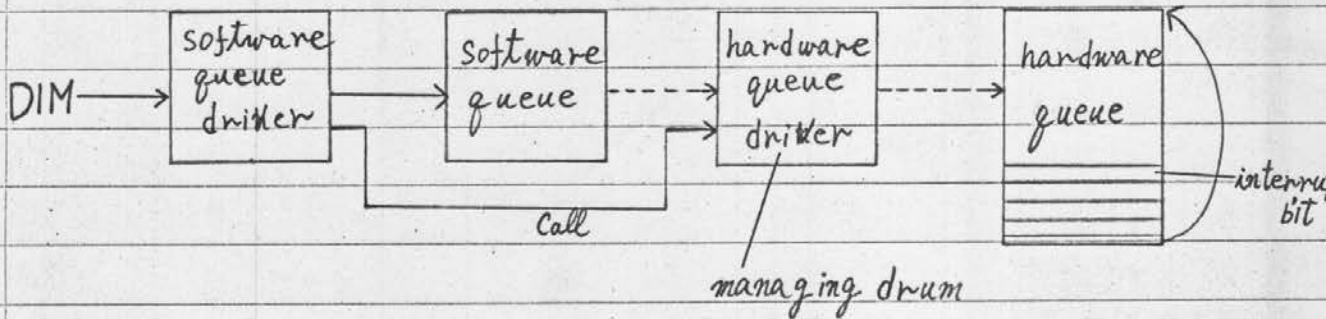 DIM
software
queue
driver
software
queue
hardware
queue
driver
hardware
queue
interru
bit
Call
managing drum